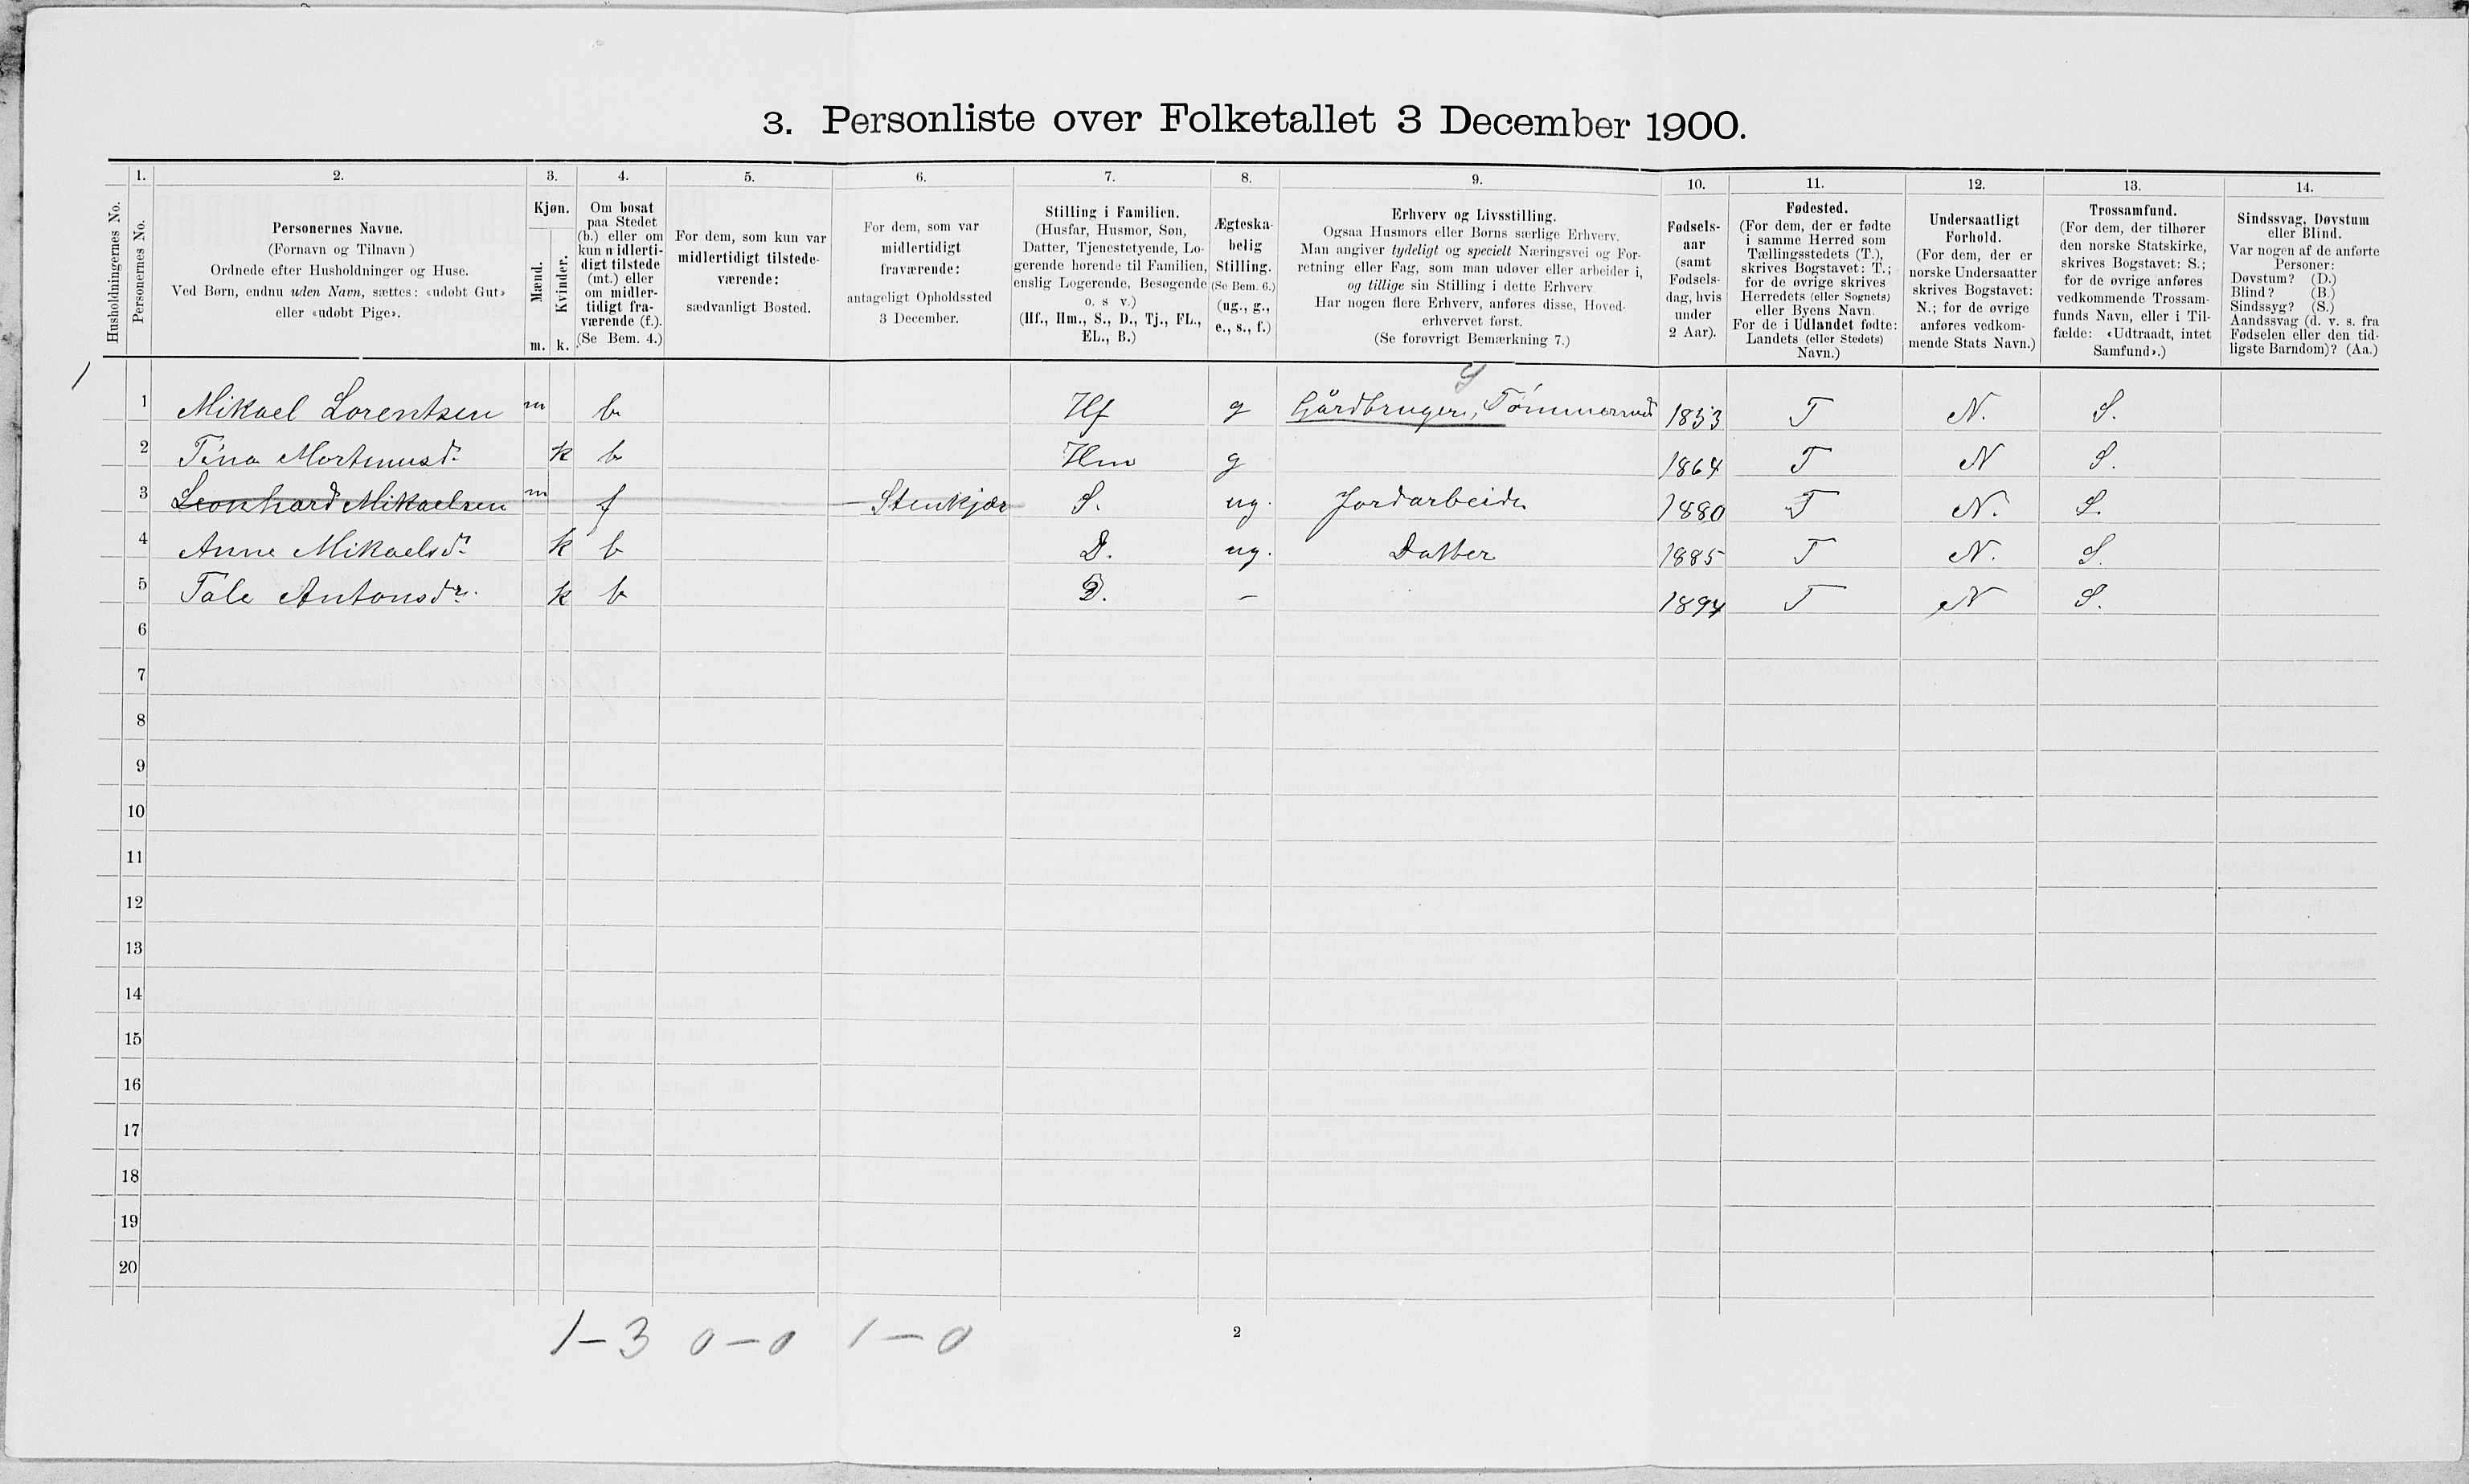 3. Personliste over Folketallet 3 December 1900.
1. 2. 3. 4. 5. 6. 7. 8. 9. 10. 11. 12. 13. 14.
Husholdningernes No.
Personernes No.
Personernes Navne.
(Fornavn og Tilnavn)
Ordnede efter Husholdninger og Huse.
Ved Børn, endnu uden Navn, sættes: «udøbt Gut»
eller «udøbt Pige».
Kjøn.
Mænd.
Kvinder.
m. k.
Om bosat
paa Stedet
(b.) eller om
kun midlerti-
digt tilstede
(mt.) eller
om midler-
tidigt fra-
værende (f.).
(Se Bem. 4.)
For dem, som kun var
midlertidigt tilstede-
værende:
sædvanligt Bosted.
For dem, som var
midlertidigt
fraværende:
antageligt Opholdssted
3 December.
Stilling i Familien.
(Husfar, Husmor, Søn,
Datter, Tjenestetyende, Lo-
gerende hørende til Familien,
enslig Logerende, Besøgende
o. s v.)
(Hf., Hm., S., D., Tj., FL.,
EL., B.)
Ægteska-
belig
Stilling.
(Se Bem. 6.)
(ug., g.,
e., s., f.)
Erhverv og Livsstilling.
Ogsaa Husmors eller Børns særlige Erhverv.
Man angiver tydeligt og specielt Næringsvei og For-
retning eller Fag, som man udøver eller arbeider i,
og tillige sin Stilling i dette Erhverv
Har nogen flere Erhverv, anføres disse, Hoved-
erhvervet først.
(Se forøvrigt Bemærkning 7.)
Fødsels-
aar
(samt
Fødsels-
dag, hvis
under
2 Aar).
Fødested.
(For dem, der er fødte
i samme Herred som
Tællingsstedets (T.),
skrives Bogstavet: T.;
for de øvrige skrives
Herredets (eller Sognets)
eller Byens Navn.
For de i Udlandet fødte:
Landets (eller Stedets)
Navn.)
Undersaatligt
Forhold.
(For dem, der er
norske Undersaatter
skrives Bogstavet:
N.; for de øvrige
anføres vedkom-
mende Stats Navn.)
Trossamfund.
(For dem, der tilhører
den norske Statskirke,
skrives Bogstavet: S.;
for de øvrige anføres
vedkommende Trossam-
funds Navn, eller i Til-
fælde: «Udtraadt, intet
Samfund».)
Sindssvag, Døvstum
eller Blind.
Var nogen af de anførte
Personer:
Døvstum? (D.)
Blind? (B.)
Sindssyg? (S.)
Aandssvag (d. v. s. fra
Fødselen eller den tid-
ligste Barndom)? (Aa.)
1
1 Mikael Lorentsen m b Hf g Gårdbruger, 1853 T N. S.
2 Tina k b Hm g 1864 T N S.
3 Leonhard Mikaelsen m f Stenkjær S. ug. Jordarbeider 1880 T N. S.
4 Anne Mikaelsdr k b D. ug. Datter 1885 T N. S.
5 Tale Antonsdr. k b D. - 1894 T N S.
6
7
8
9
10
11
12
13
14
15
16
17
18
19
20
1-3 0-0 1-0
2